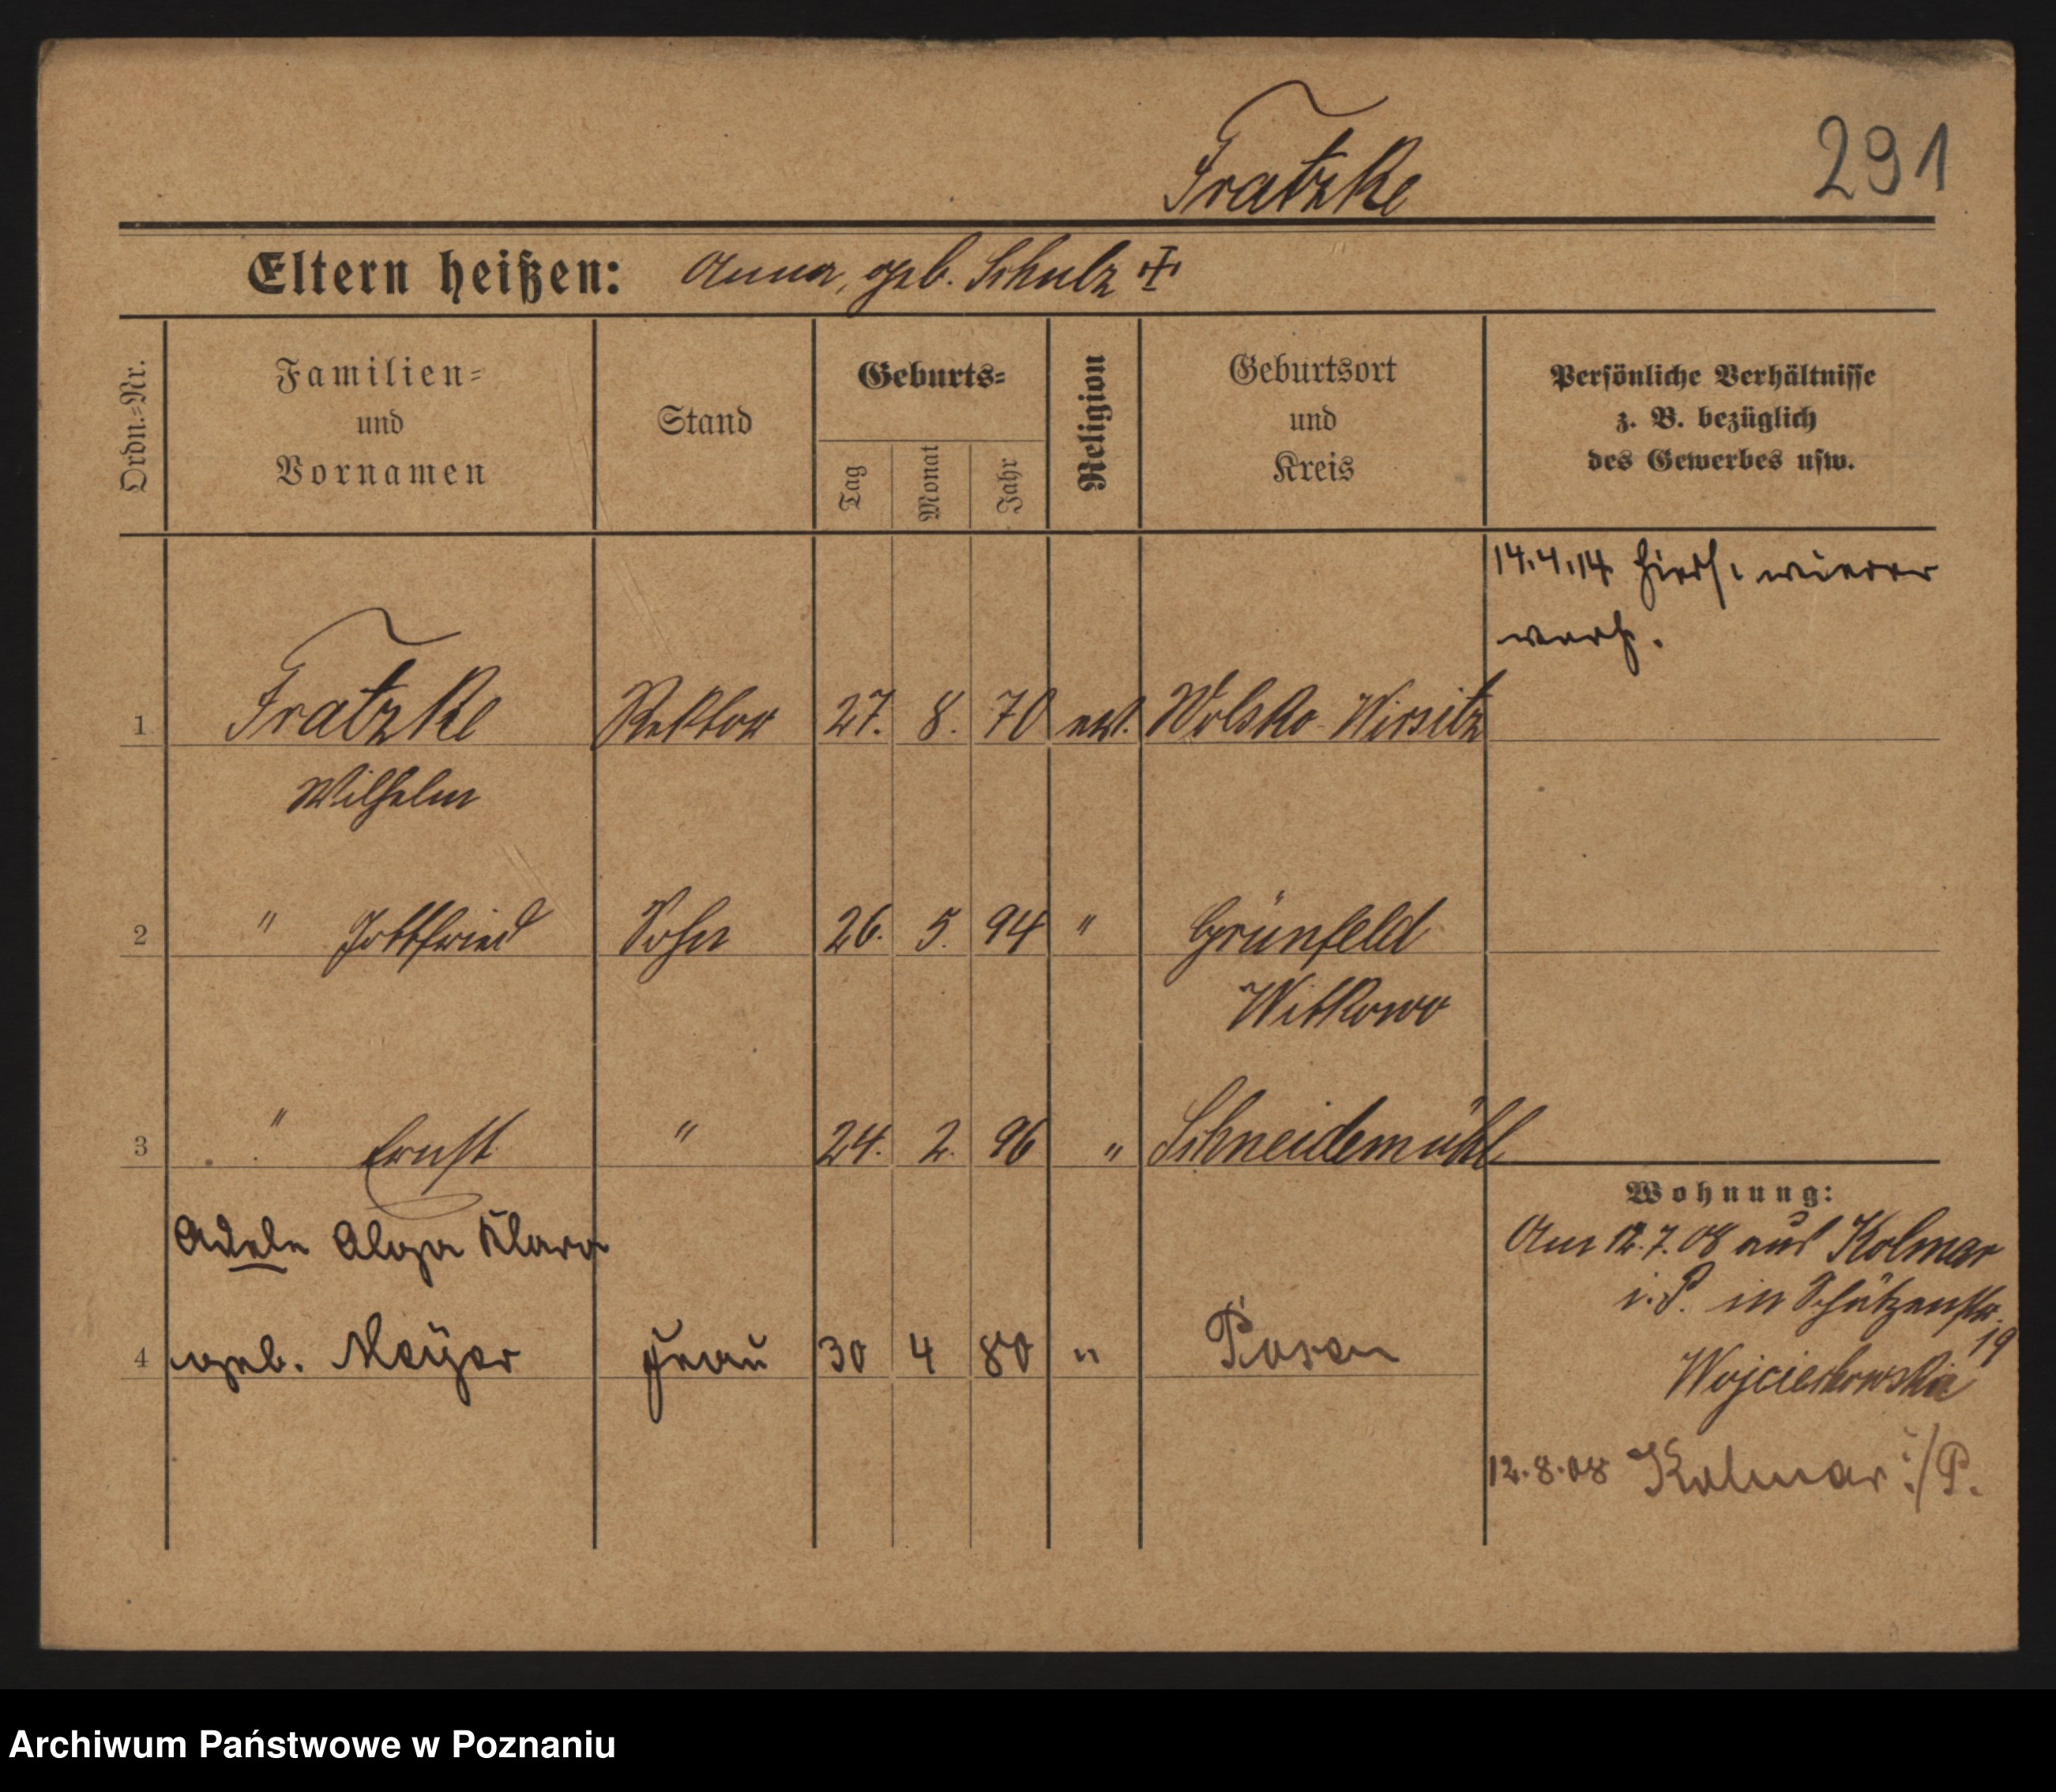 Fratzke
291
Eltern heißen: Anna, geb. Schulz ☩
Ordn.=Nr.
Familien=
und
Vornamen
Stand
Geburts=
Tag
Monat
Jahr
Religion
Geburtsort
und
Kreis
Persönliche Verhältnisse
z. B. bezüglich
des Gewerbes usw.
14.4.14 hiers. wieder
verh.
1 Fratzke Rektor 27. 8. 70 evl. Wolsko Wirsitz
Wilhelm
2 " Gottfried Sohn 26. 5. 94 " Grünfeld
Witkowo
3 " Ernst " 24. 2. 96 " Schneidemühl
Adele Olga Klara
4 geb. Meyer Frau 30 4 80 " Posen
Wohnung:
Am 12.7.08 aus Kolmar
i. P. in Schützenstr.
19
Wojciechowska
12.8.08 Kolmar i/P.
Archiwum Państwowe w Poznaniu